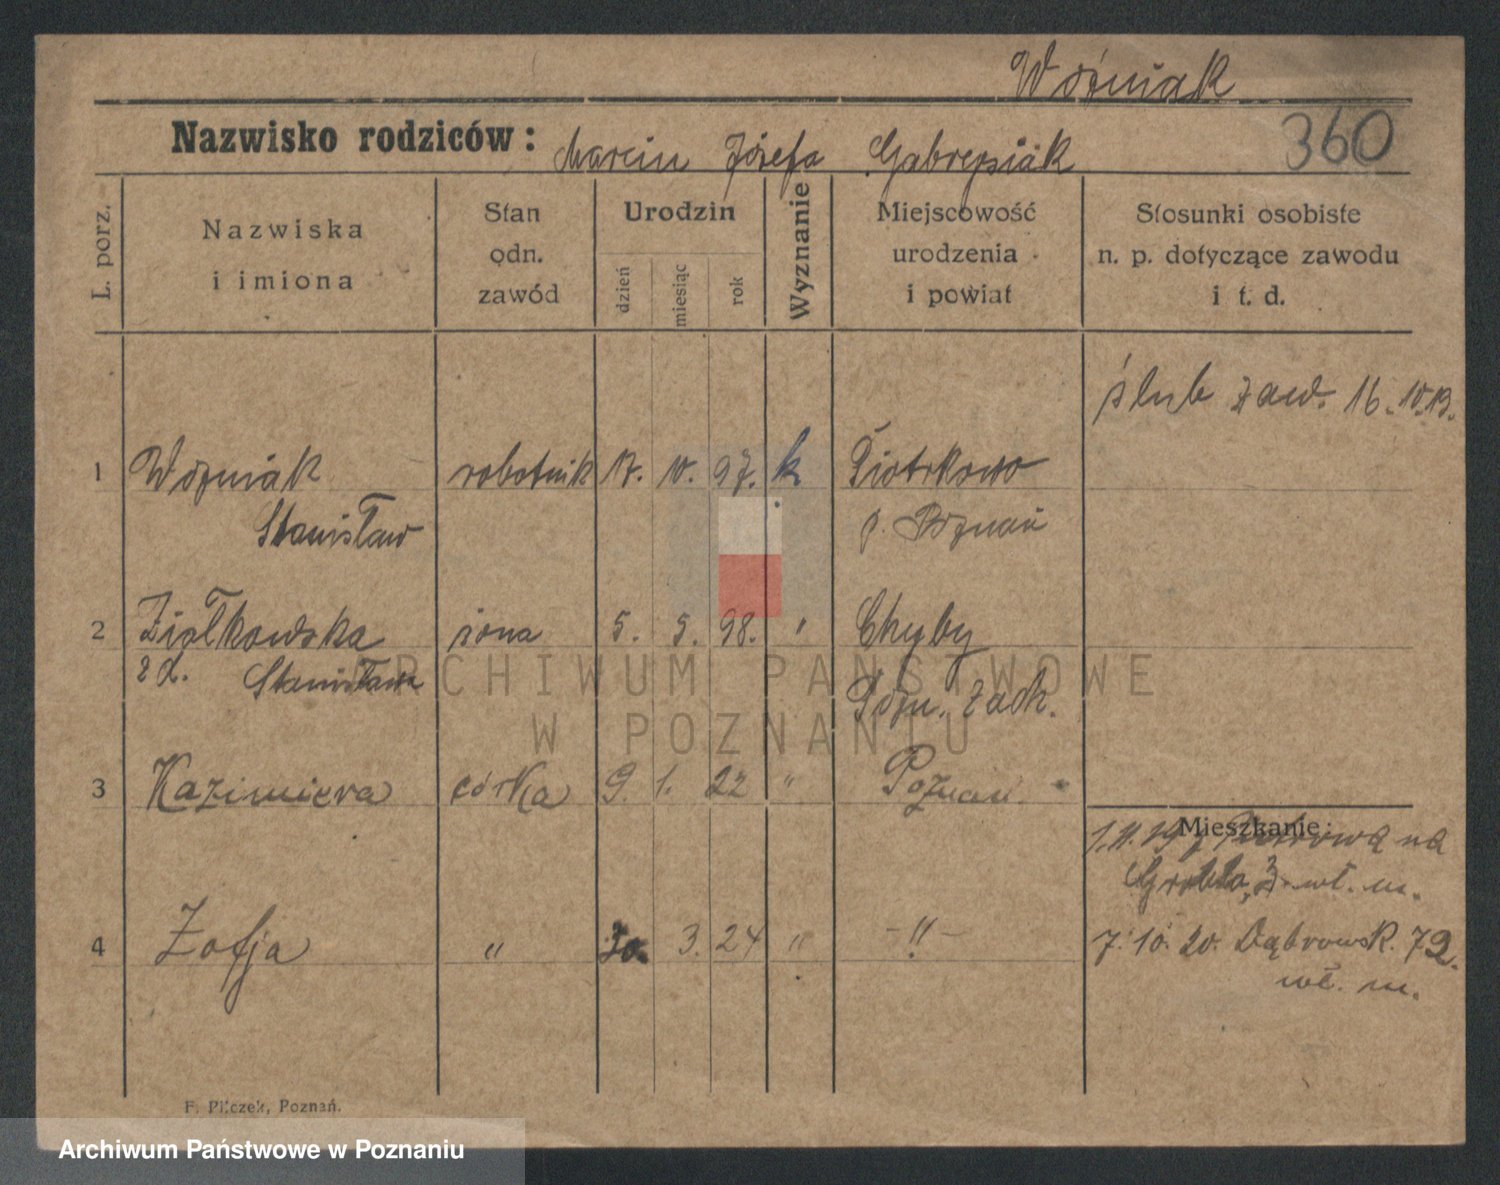 Woźniak
Nazwisko rodziców: Marcin Józefa Gabrysiak
360
L. porz.
Nazwiska
i imiona
Stan
odn.
zawód
Urodzin
dzień
miesiąc
rok
Wyznanie
Miejscowość
urodzenia
i powiat
Stosunki osobiste
n. p. dotyczące zawodu
i t. d.
ślub zaw. 16. 10. 13.
1 Woźniak robotnik 17. 10. 97. k Piotrkowo
Stanisław p. Poznań
2 Ziółkowska żona 5. 5. 98. " Chyby
z d. Stanisława Pozn. Zach.
ARCHIWUM PAŃSTWOWE
W POZNANIU
3 Kazimiera córka 9. 1. 22 " Poznań
Mieszkanie:
1. 11. 19 z na
Grobla 3 wł. m.
4 Zofja " 3. 24 " - " -
7. 10. 20. Dąbrowsk. 72.
wł. m.
F. Pilczek, Poznań.
Archiwum Państwowe w Poznaniu